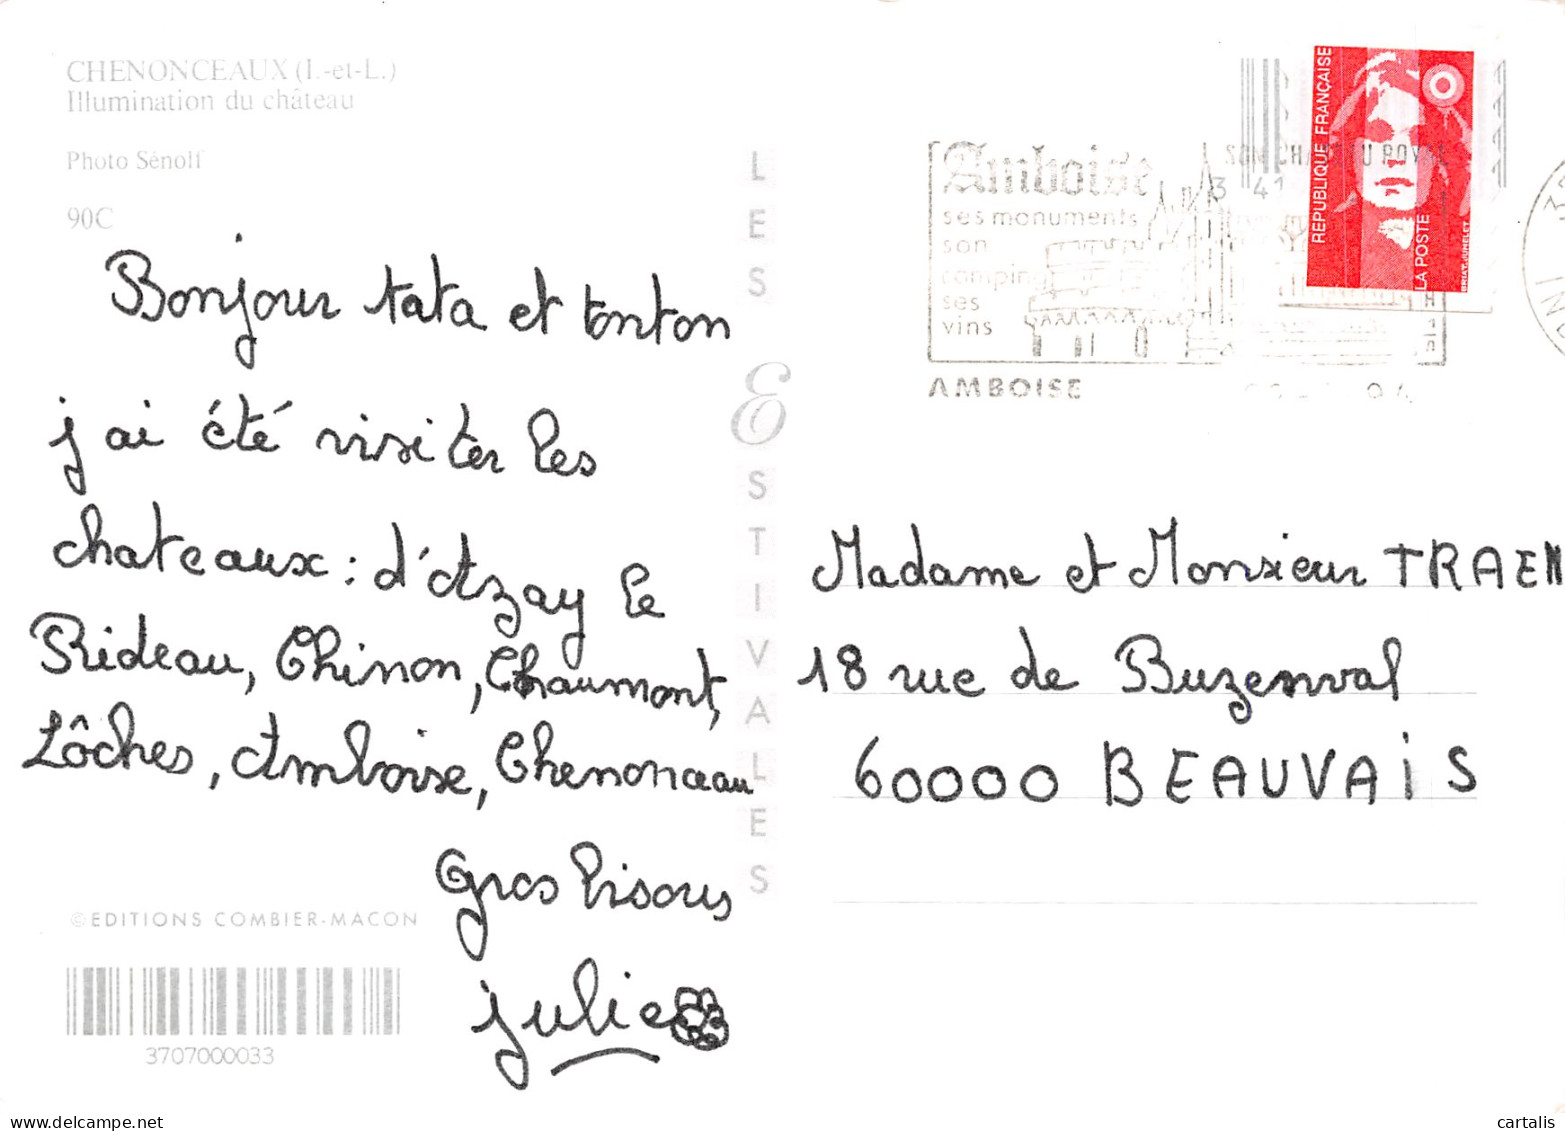 CHENONCEAUX (I.-et-L.)
Illumination du château
Photo Sénolf
90C
Bonjour tata et tonton
j'ai été visiter les
chateaux : d'Azay le
Rideau, Chinon, Chaumont,
Lôches, Amboise, Chenonceau
Gros bisous
julie
©EDITIONS COMBIER-MACON
3707000033
LES ESTIVALES
Amboise
ses monuments
son
camping
ses
vins
AMBOISE
REPUBLIQUE FRANÇAISE
LA POSTE
Madame et Monsieur TRAEN
18 rue de Buzenval
60000 BEAUVAIS
cartalis